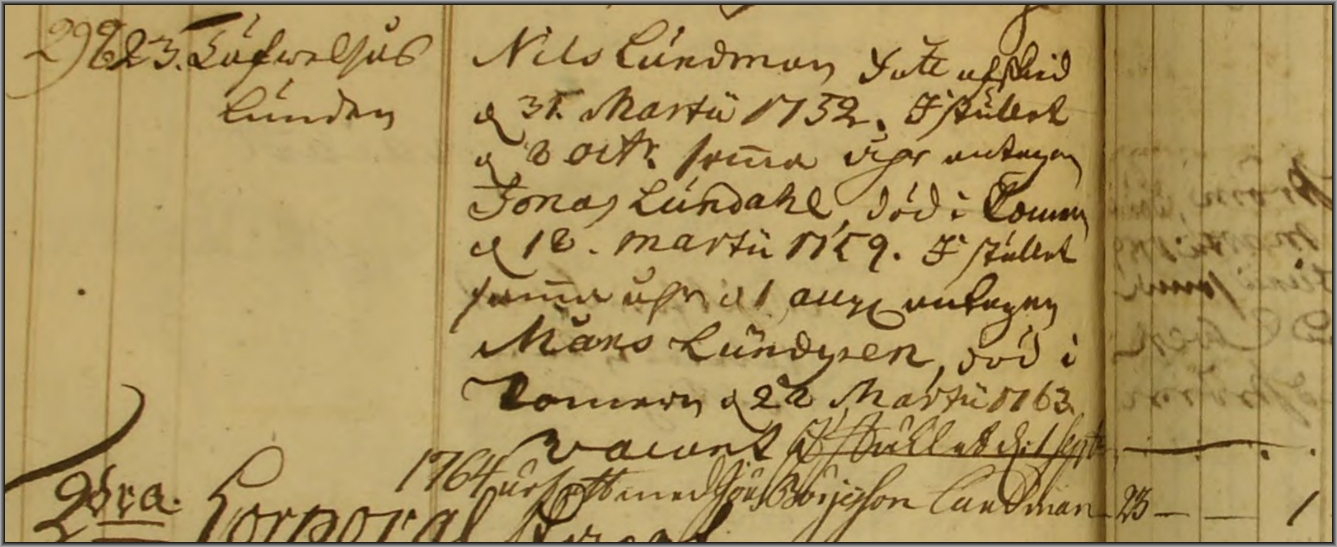 23. Löfwelsjus
Lunden
Nils Lundman, fått afskid
d 31. Martii 1752. I stället
d 3 octr. samma åhr antagen
Jonas Lundahl, död i Pomern
d 18. Martii 1759. I stället
samma åhr d 1 aug antagen
Måns Lundgren, död i
Pomern d 22 Martii 1763.
vacant I stället d. 1 Sept
1764 med Börjesson Landman 23 — — 1
2dra. Corporal